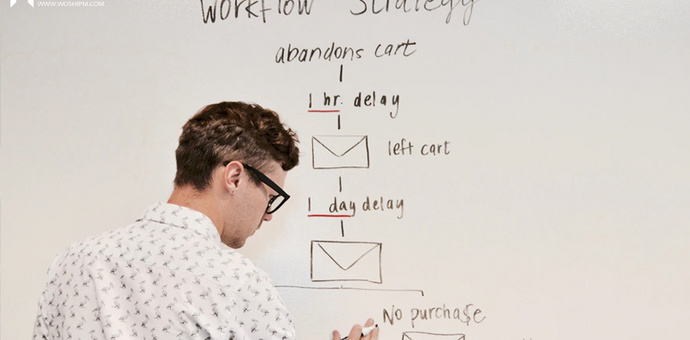 WWW.WOSHIPM.COM
Workflow Strategy
abandons cart
1 hr. delay
left cart
1 day delay
No purchase